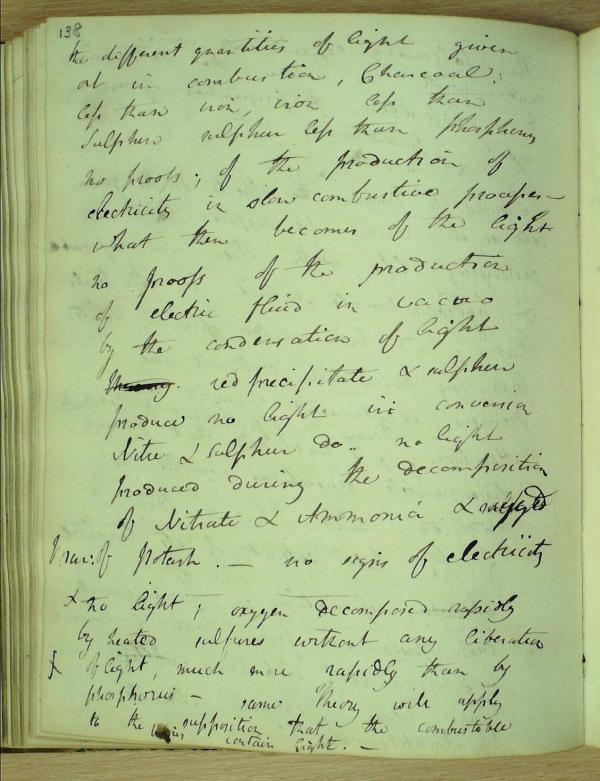 138
the different quantities of light given
out in combustion, Charcoal;
less than iron, iron less than
Sulphur sulphur less than phosphorus
no proofs; of the production of
electricity in slow combustive processes –
what then becomes of the light
no proofs of the production
of electric fluid in vacuo
by the condensation of light
red precipitate & sulphur
produce no light in conversion
Nitre & Sulphur do.. no light
produced during the decomposition
of Nitrate & Ammonia &
of Potash. — no signs of electricity
x no light; oxygen decomposed rapidly
by heated sulfures without any liberation
x of light, much more rapidly than by
phosphorus – same theory will apply
to the supposition that the combustible
contain light. —